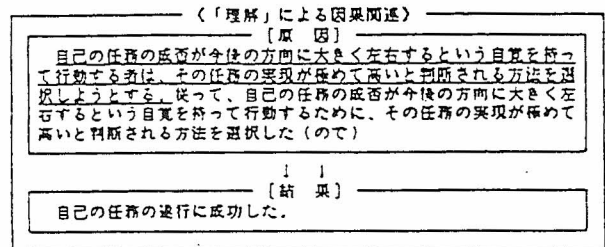 〈「理解」による因果関連〉
[原 因]
自己の任務の成否が今後の方向に大きく左右するという自覚を持っ
て行動する者は、その任務の実現が極めて高いと判断される方法を選
択しようとする。従って、自己の任務の成否が今後の方向に大きく左
右するという自覚を持って行動するために、その任務の実現が極めて
高いと判断される方法を選択した(ので)
↓ ↓
[結 果]
自己の任務の遂行に成功した。